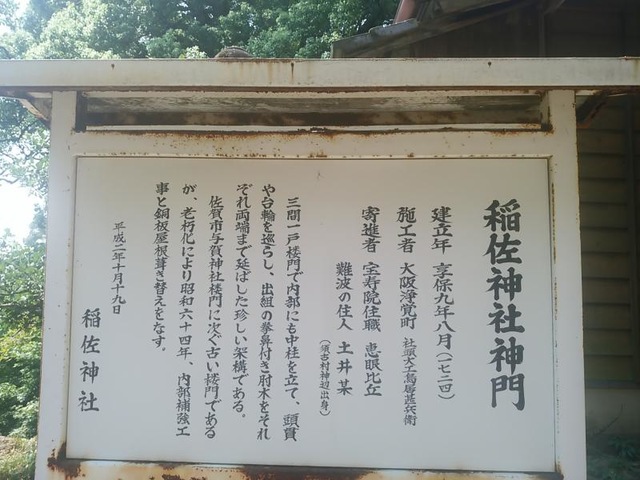 稲佐神社神門
建立年 享保九年八月（一七二四）
施工者 大阪浄覚町 社頭大工鳥居甚兵衛
寄進者 宝寿院住職 恵眼比丘
難波の住人 土井某
（須古村神辺出身）
三間一戸楼門で内部にも中柱を立て、頭貫
や台輪を巡らし、出組の拳鼻付き肘木をそれ
ぞれ両端まで延ばした珍しい架構である。
佐賀市与賀神社楼門に次ぐ古い楼門である
が、老朽化により昭和六十四年、内部補強工
事と銅板屋根葺き替えをなす。
平成二年十月十九日
稲佐神社